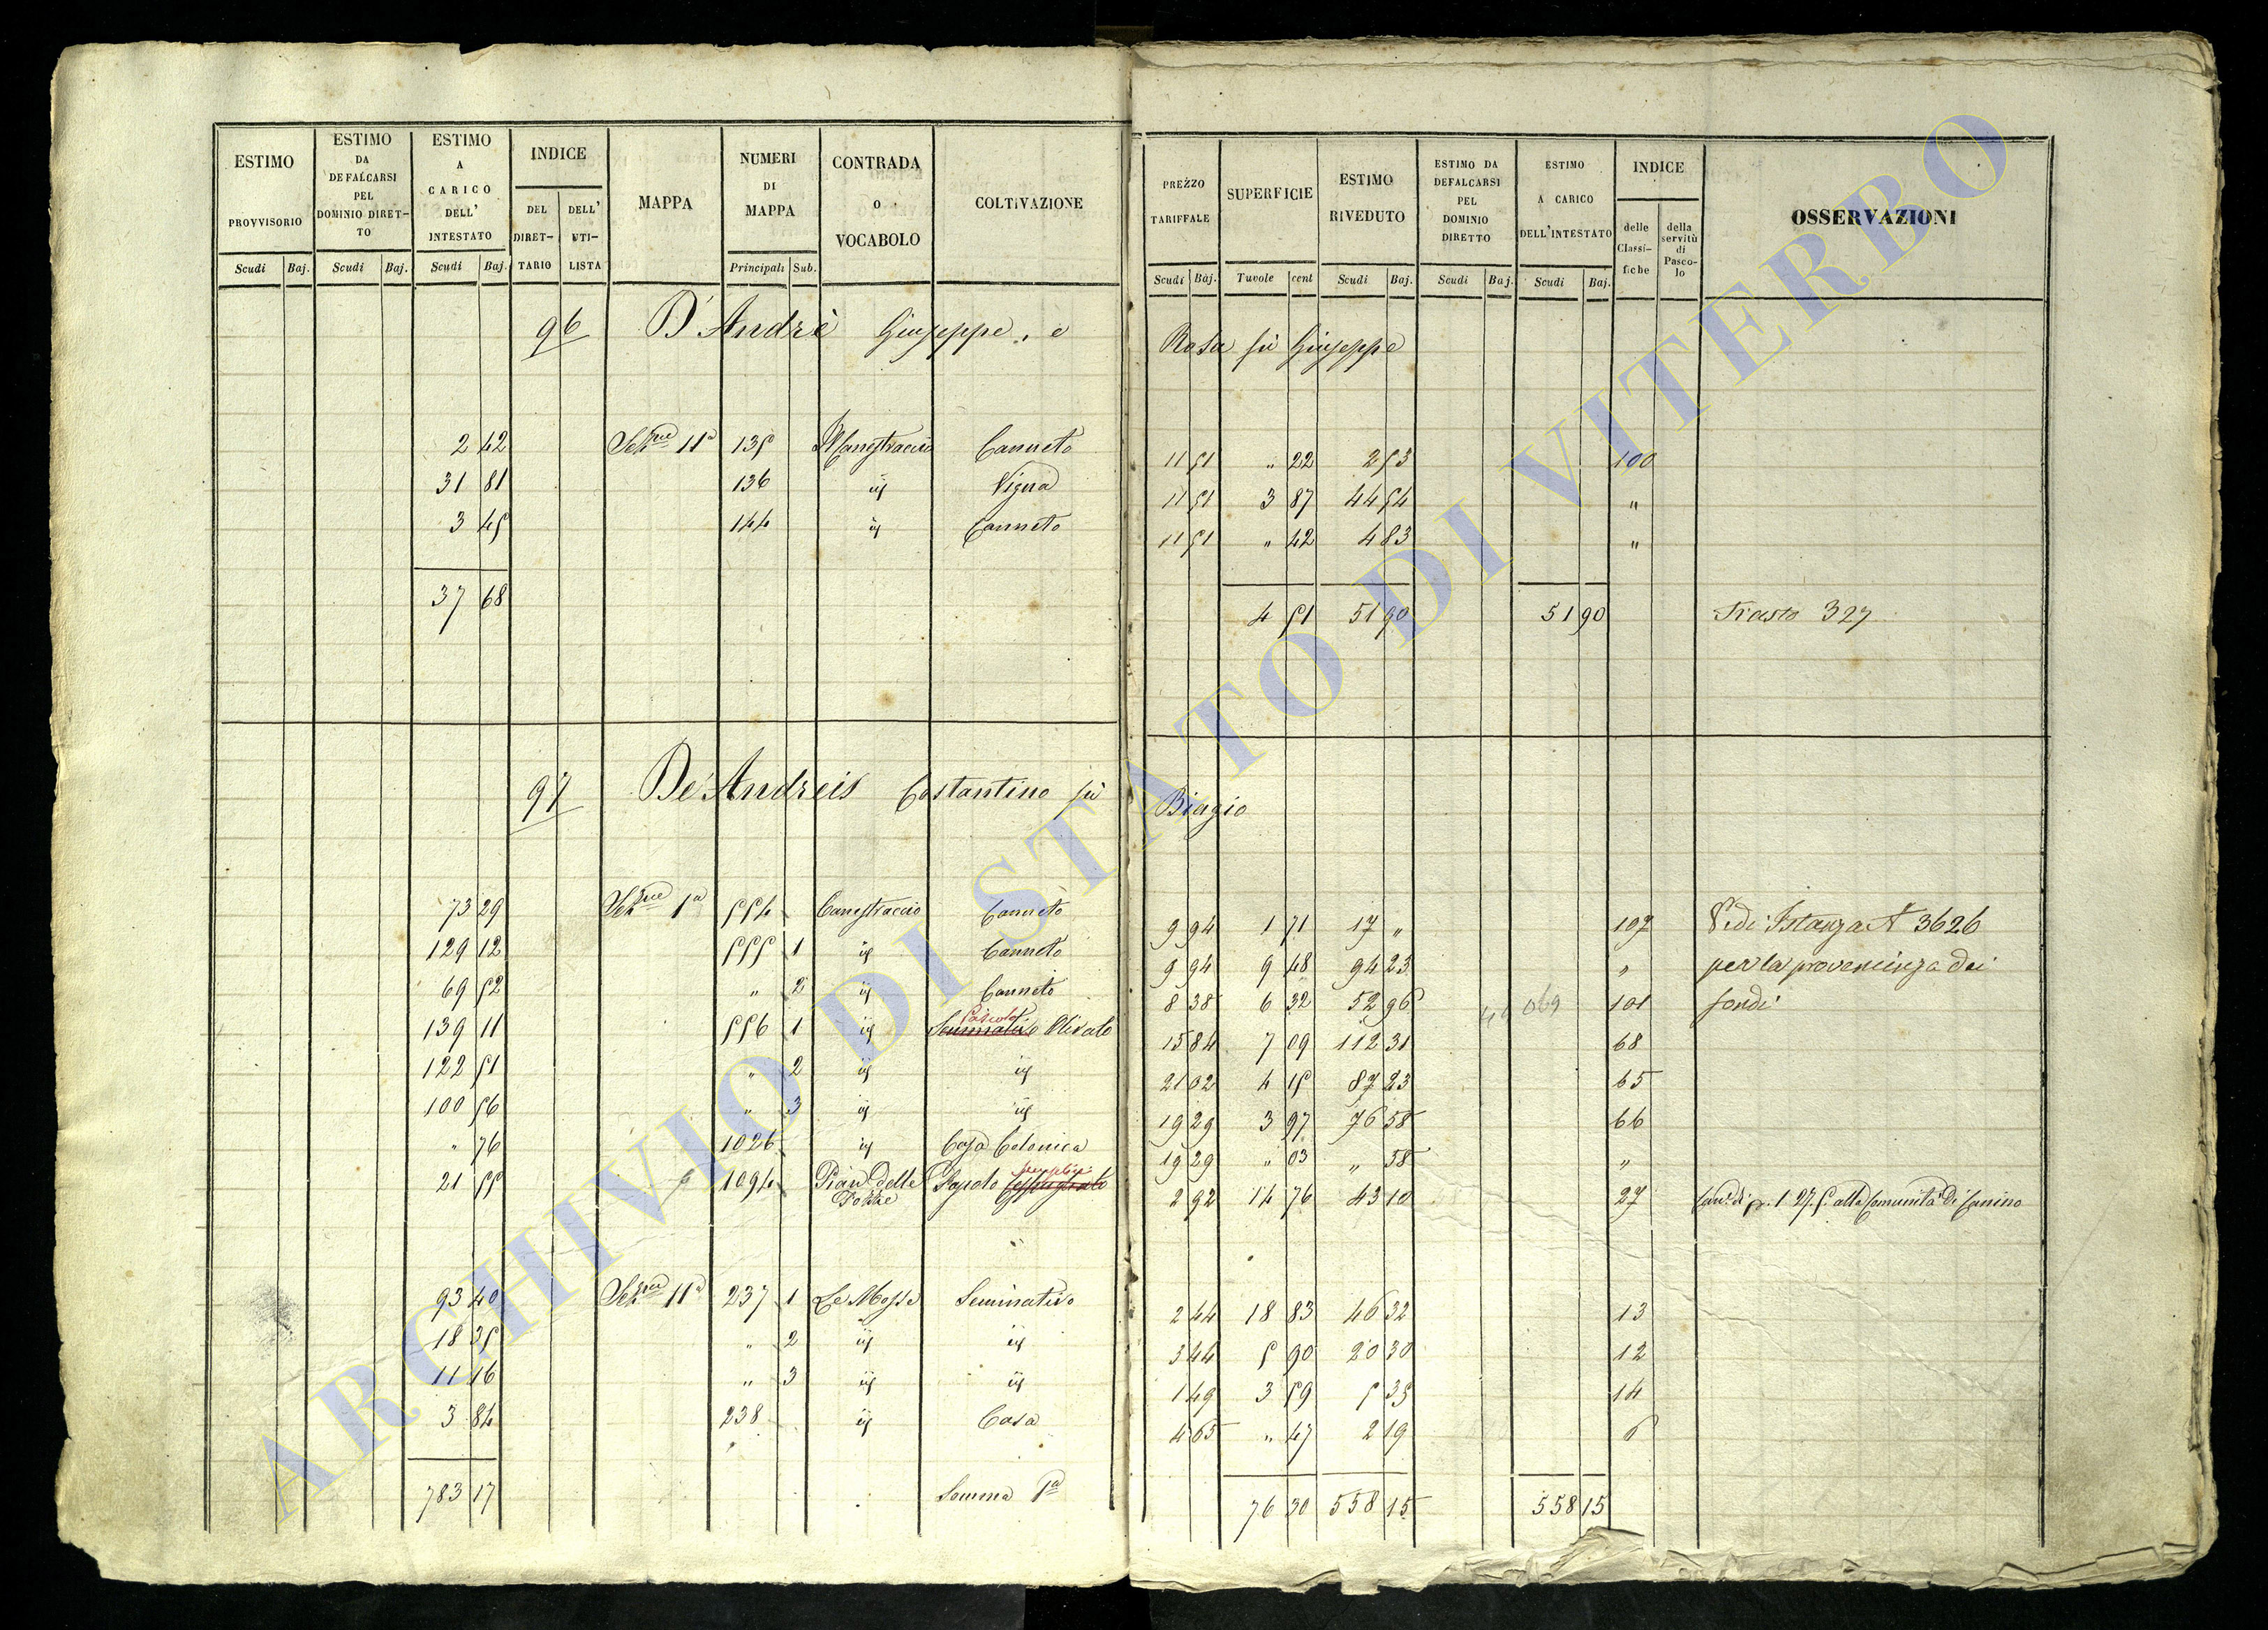 ESTIMO PROVVISORIO Scudi Baj.
ESTIMO DA DEFALCARSI PEL DOMINIO DIRET-TO Scudi Baj.
ESTIMO A CARICO DELL' INTESTATO Scudi Baj.
INDICE DEL DIRET-TARIO DELL' UTI-LISTA
MAPPA
NUMERI DI MAPPA Principali Sub.
CONTRADA O VOCABOLO
COLTIVAZIONE
PREZZO TARIFFALE Scudi Baj.
SUPERFICIE Tavole cent
ESTIMO RIVEDUTO Scudi Baj.
ESTIMO DA DEFALCARSI PEL DOMINIO DIRETTO Scudi Baj.
ESTIMO A CARICO DELL'INTESTATO Scudi Baj.
INDICE delle Classi-fiche della servitù di Pasco-lo
OSSERVAZIONI
96 D'Andrè Giuseppe, e Rosa fù Giuseppe
2 42 Sez.ne 11a 135 Il Canestraccio Canneto 11 51 " 22 2 53 100
31 81 136 id Vigna 11 51 3 87 44 54 "
3 45 144 id Canneto 11 51 " 42 4 83 "
37 68 4 51 51 90 51 90 Trasto 327
97 De Andreis Costantino fù Biagio
73 29 Sez.ne 1a 554 Canestraccio Canneto 9 94 1 71 17 " 107 Vedi Istanza N 3626
129 12 555 1 id Canneto 9 94 9 48 94 23 " per la provenienza dei
69 52 " 2 id Canneto 8 38 6 32 52 96 101 fondi
139 11 556 1 id Seminativo Pascolo Olivato 15 84 7 09 112 31 68
122 51 " 2 id id 21 02 4 15 87 23 65
100 56 " 3 id id 19 29 3 97 76 58 66
" 76 1026 id Casa Colonica 19 29 " 03 " 58 "
21 55 1094 Pian delle Pozze Pascolo Cespugliato semplice 2 92 14 76 43 10 27 Can.e di sc. 1 27.5 alla Comunità di Canino
93 40 Sez.ne 11a 237 1 Le Mosse Seminativo 2 44 18 83 46 32 13
18 35 " 2 id id 3 44 5 90 20 30 12
11 16 " 3 id id 1 49 3 59 5 35 14
3 84 238 id Casa 4 65 " 47 2 19 6
783 17 Somma 1a 76 30 558 15 558 15
ARCHIVIO DI STATO DI VITERBO